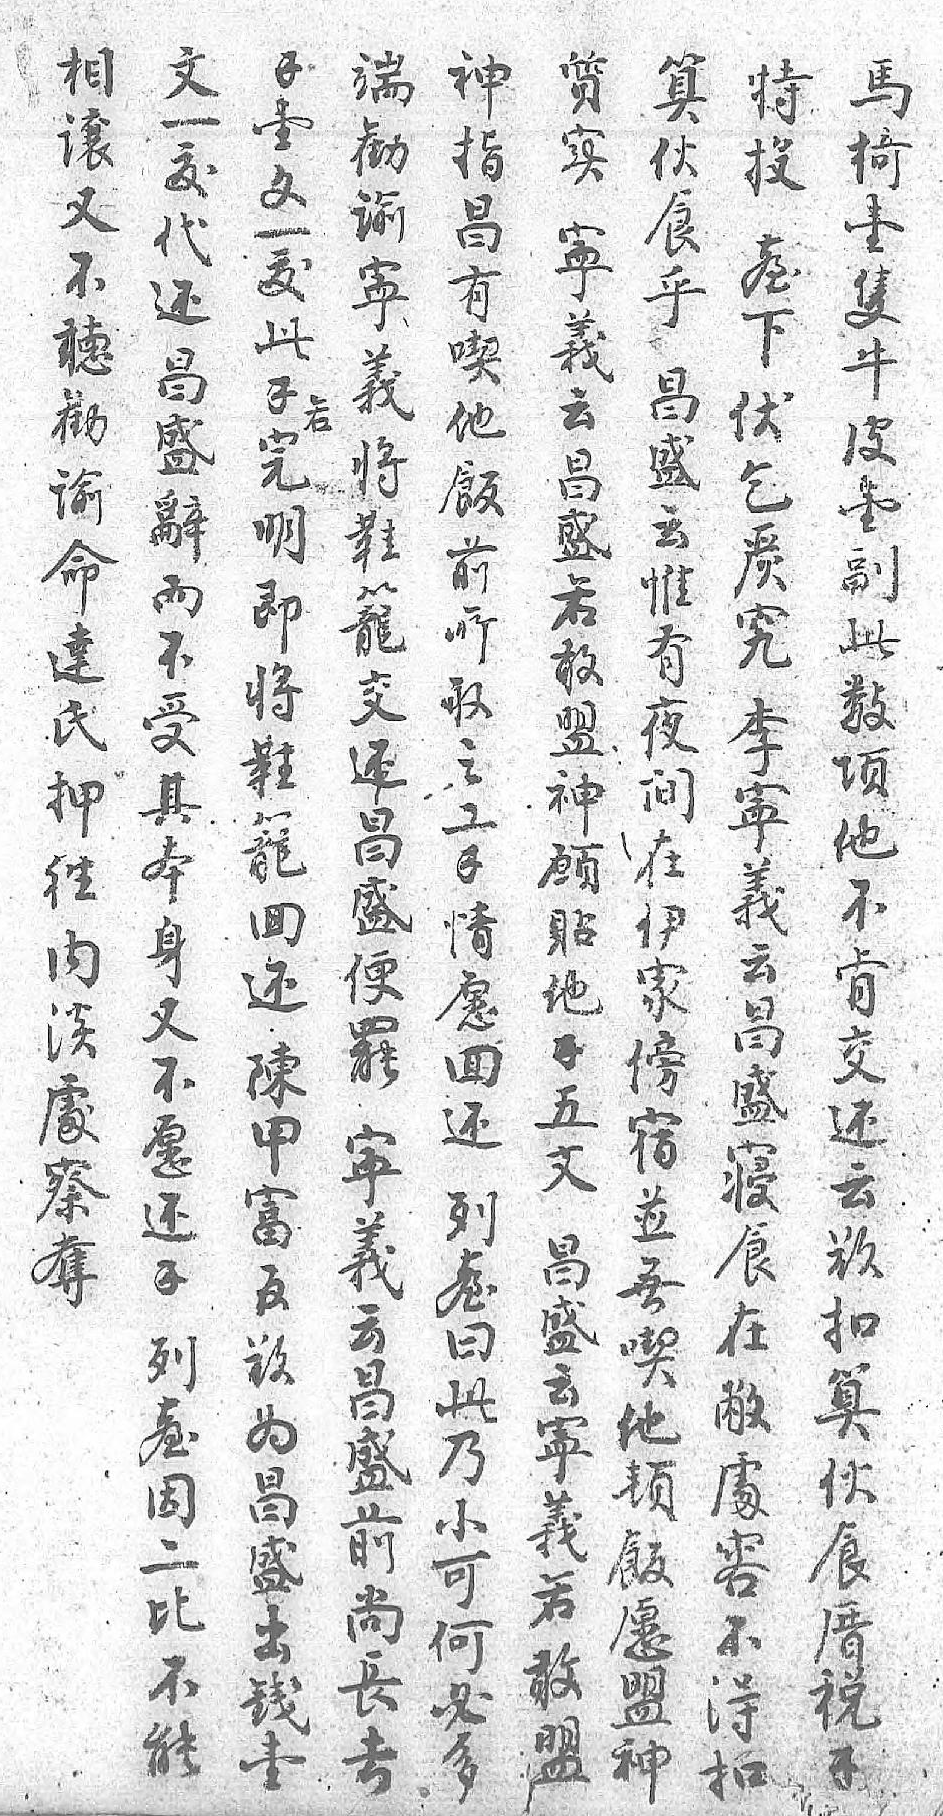 馬椅壹隻牛皮壹副此數項他不肯交还云欲扣算伙食厝税子
特投 臺下伏乞嚴究李寧義云昌盛寢食在敝處容不得扣
算伙食乎 昌盛云惟有夜间在伊家傍宿並無喫他頓飯愿盟神
質实 寧義云昌盛若敢盟神願貼他子五文 昌盛云寧義若敢盟
神指昌有喫他飯前所取之工子情愿囬还 列臺曰此乃小可何必多
端勸諭寧義将鞋籠交还昌盛便罷 寧義云昌盛前尚長去
子壹文一交此子若完明即将鞋籠囬还陳甲富反欵为昌盛出錢壹
文一交代还昌盛辭而不受其本身又不愿还子 列臺因二比不能
相讓又不聽勸諭命達氏押往内淡處察奪